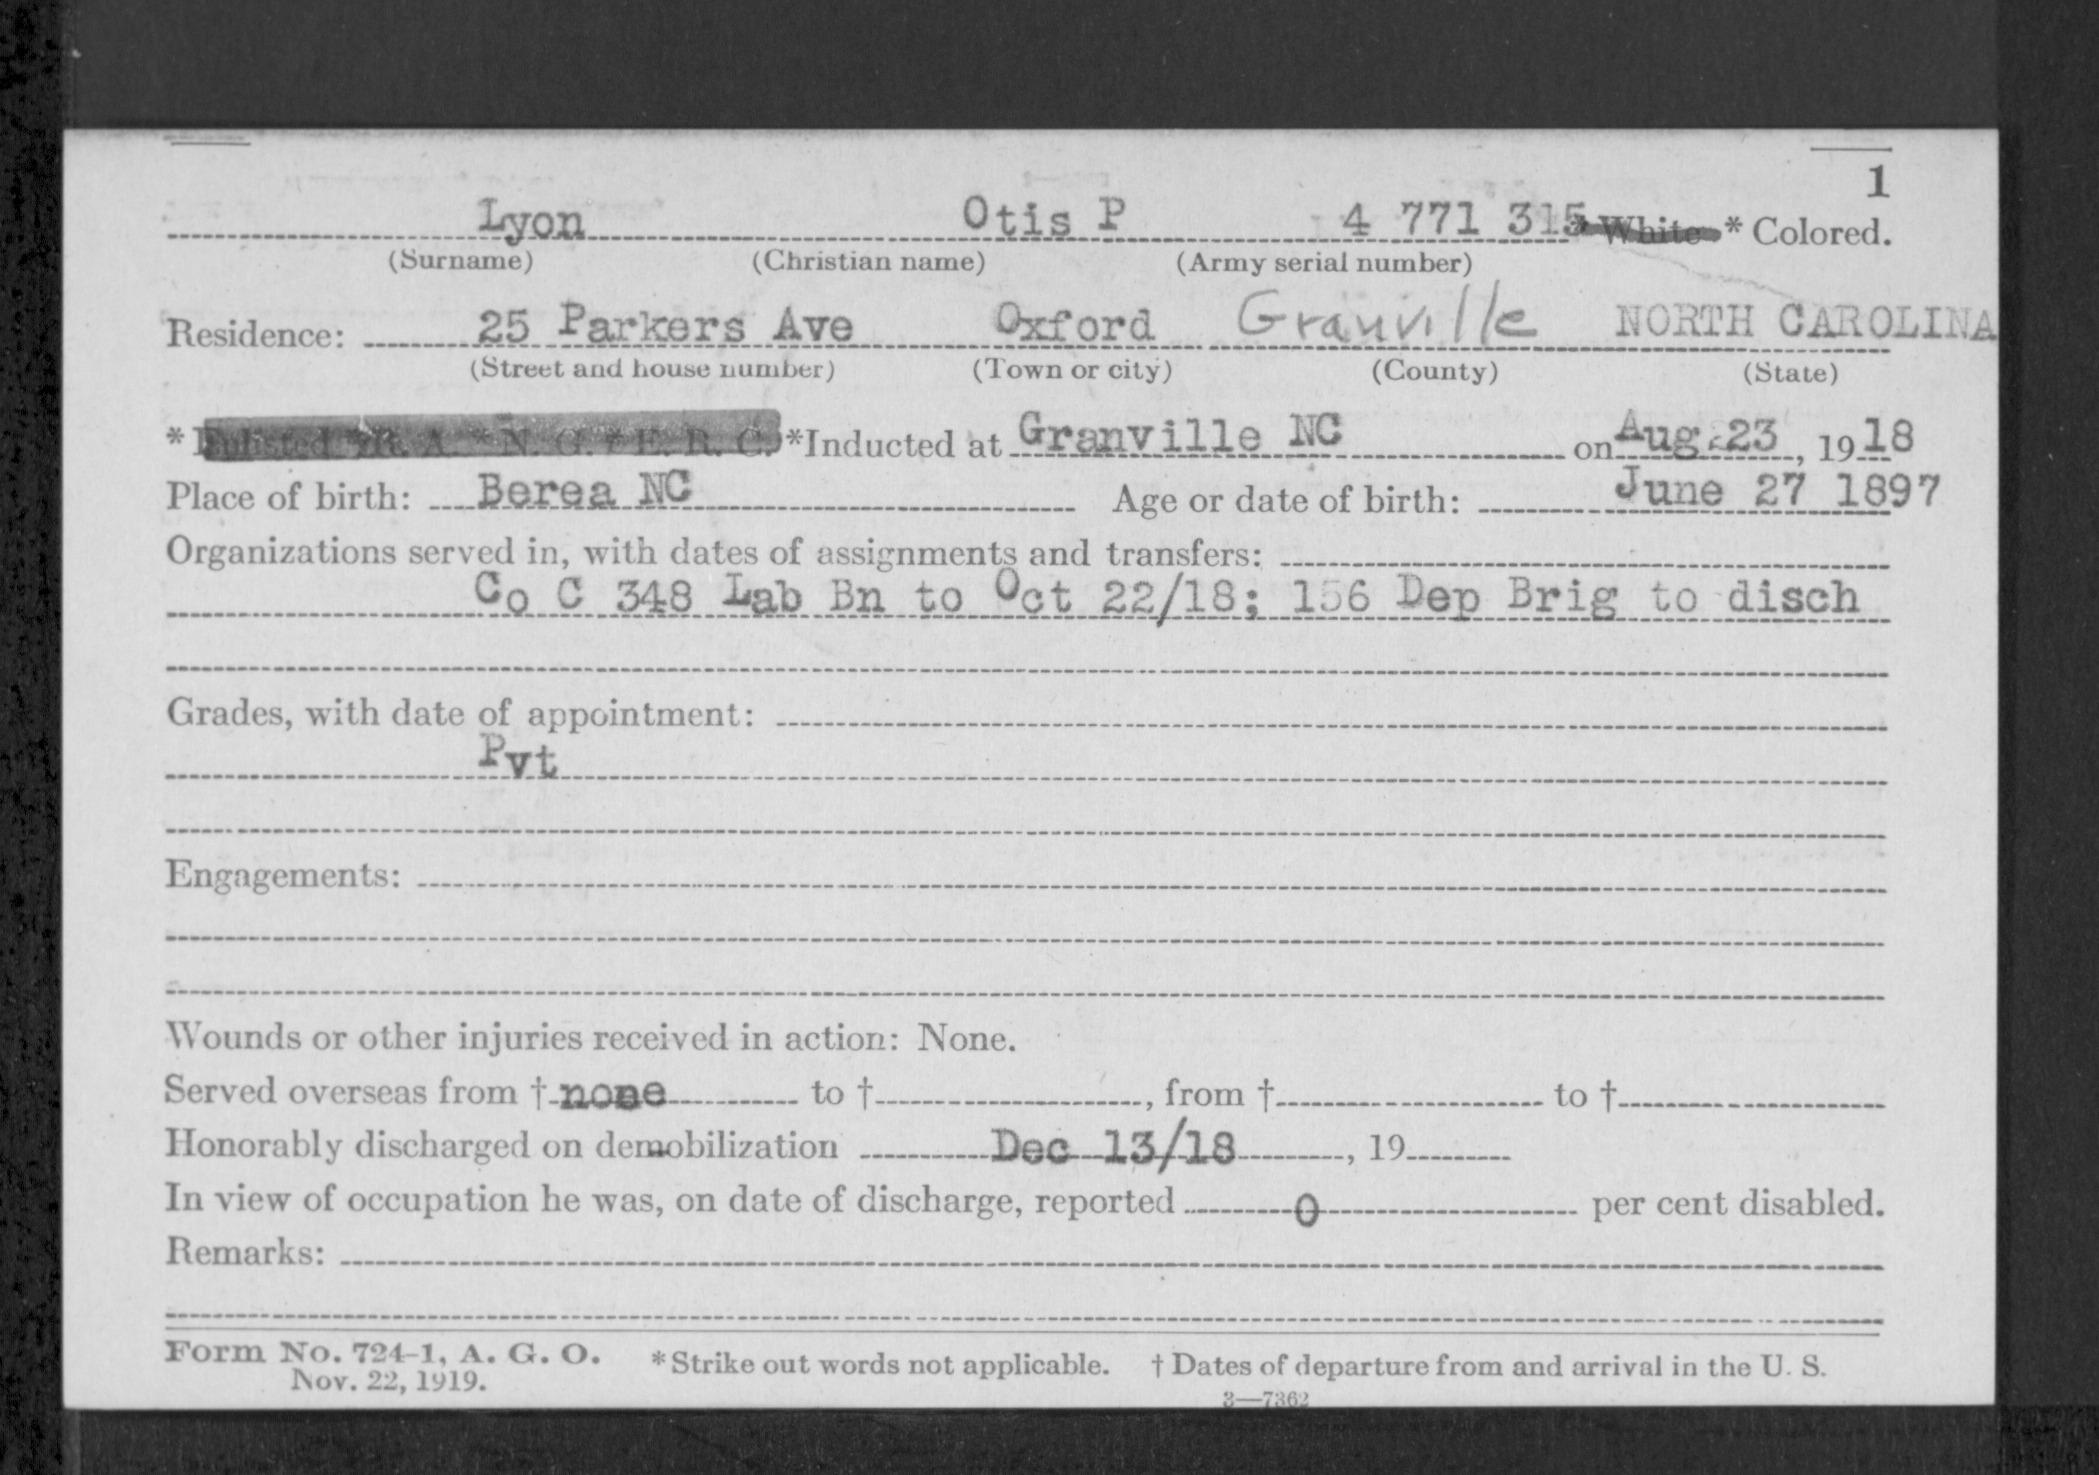 1
Lyon Otis P 4 771 315 * White * Colored.
(Surname) (Christian name) (Army serial number)
Residence: 25 Parkers Ave Oxford Granville NORTH CAROLINA
(Street and house number) (Town or city) (County) (State)
* Enlisted * R. A. * N. G. * E. R. C. *Inducted at Granville NC on Aug 23, 1918
Place of birth: Berea NC Age or date of birth: June 27 1897
Organizations served in, with dates of assignments and transfers:
Co C 348 Lab Bn to Oct 22/18; 156 Dep Brig to disch
Grades, with date of appointment:
Pvt
Engagements:
Wounds or other injuries received in action: None.
Served overseas from † none to †, from † to †
Honorably discharged on demobilization Dec 13/18, 19
In view of occupation he was, on date of discharge, reported 0 per cent disabled.
Remarks:
Form No. 724-1, A. G. O. *Strike out words not applicable. † Dates of departure from and arrival in the U. S.
Nov. 22, 1919.
3—7362